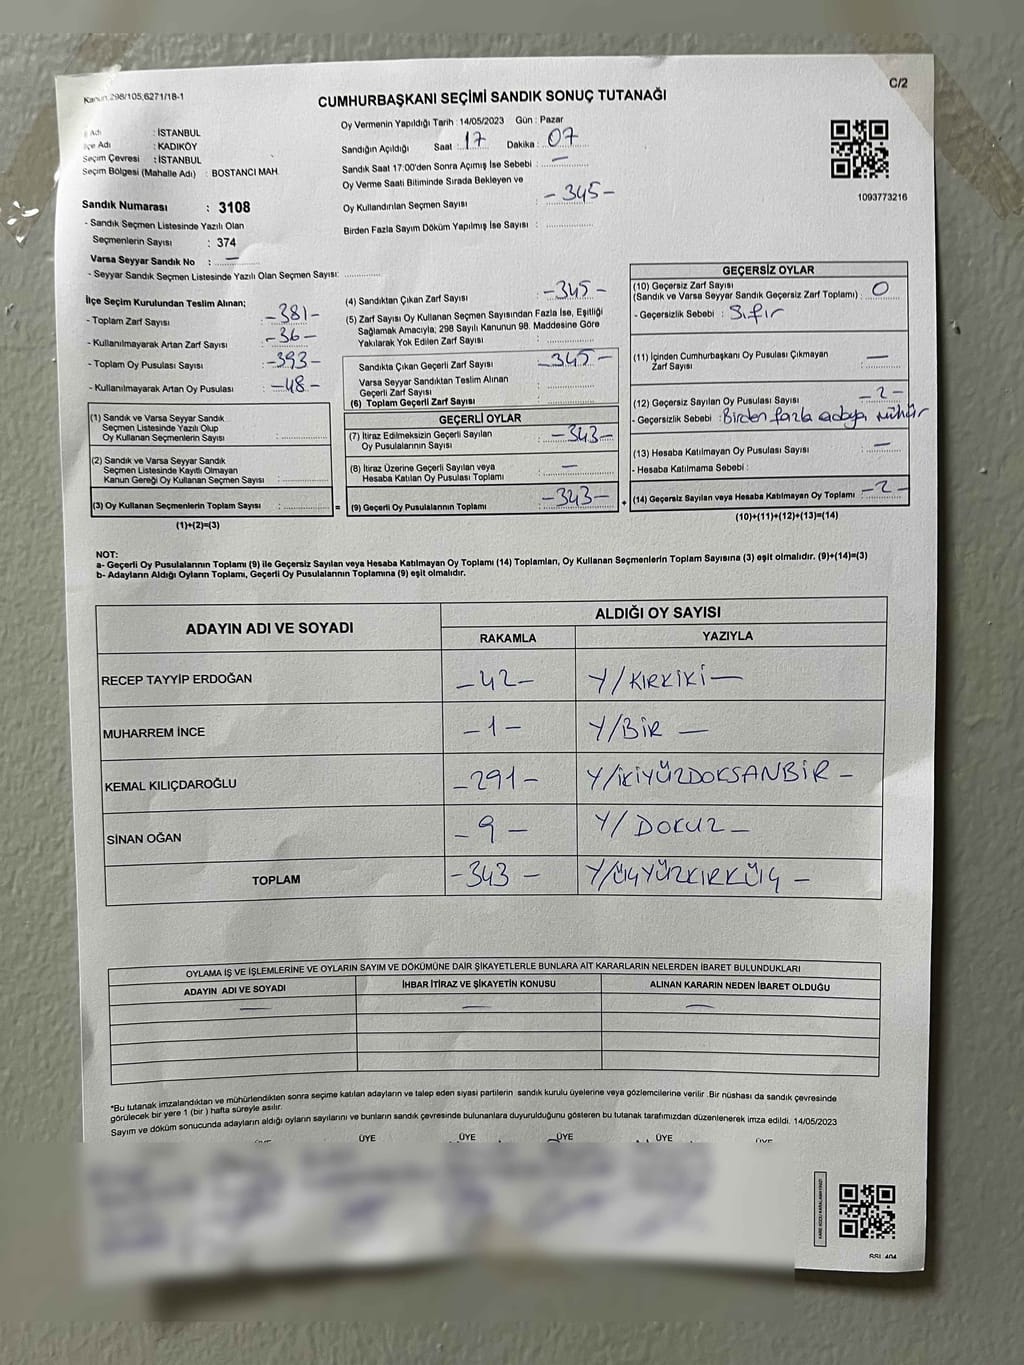 Kanun 298/105,6271/18-1
C/2
CUMHURBAŞKANI SEÇİMİ SANDIK SONUÇ TUTANAĞI
İl Adı : İSTANBUL
İlçe Adı : KADIKÖY
Seçim Çevresi : İSTANBUL
Seçim Bölgesi (Mahalle Adı) : BOSTANCI MAH.
Sandık Numarası : 3108
- Sandık Seçmen Listesinde Yazılı Olan
Seçmenlerin Sayısı : 374
Varsa Seyyar Sandık No : —
- Seyyar Sandık Seçmen Listesinde Yazılı Olan Seçmen Sayısı:
Oy Vermenin Yapıldığı Tarih : 14/05/2023 Gün : Pazar
Sandığın Açıldığı Saat : 17 Dakika : 07
Sandık Saat 17:00'den Sonra Açımış İse Sebebi : —
Oy Verme Saati Bitiminde Sırada Bekleyen ve
Oy Kullandırılan Seçmen Sayısı : -345-
Birden Fazla Sayım Döküm Yapılmış İse Sayısı :
1093773216
İlçe Seçim Kurulundan Teslim Alınan;
- Toplam Zarf Sayısı : -381-
- Kullanılmayarak Artan Zarf Sayısı : -36-
- Toplam Oy Pusulası Sayısı : -393-
- Kullanılmayarak Artan Oy Pusulası : -48-
(1) Sandık ve Varsa Seyyar Sandık
Seçmen Listesinde Yazılı Olup
Oy Kullanan Seçmenlerin Sayısı :
(2) Sandık ve Varsa Seyyar Sandık
Seçmen Listesinde Kayıtlı Olmayan
Kanun Gereği Oy Kullanan Seçmen Sayısı :
(3) Oy Kullanan Seçmenlerin Toplam Sayısı :
(1)+(2)=(3)
(4) Sandıktan Çıkan Zarf Sayısı : -345-
(5) Zarf Sayısı Oy Kullanan Seçmen Sayısından Fazla İse, Eşitliği
Sağlamak Amacıyla; 298 Sayılı Kanunun 98. Maddesine Göre
Yakılarak Yok Edilen Zarf Sayısı :
Sandıkta Çıkan Geçerli Zarf Sayısı : -345-
Varsa Seyyar Sandıktan Teslim Alınan
Geçerli Zarf Sayısı :
(6) Toplam Geçerli Zarf Sayısı :
GEÇERLİ OYLAR
(7) İtiraz Edilmeksizin Geçerli Sayılan
Oy Pusulalarının Sayısı : -343-
(8) İtiraz Üzerine Geçerli Sayılan veya
Hesaba Katılan Oy Pusulası Toplamı : —
= (9) Geçerli Oy Pusulalarının Toplamı : -343- +
GEÇERSİZ OYLAR
(10) Geçersiz Zarf Sayısı
(Sandık ve Varsa Seyyar Sandık Geçersiz Zarf Toplamı) : 0
- Geçersizlik Sebebi : Sıfır
(11) İçinden Cumhurbaşkanı Oy Pusulası Çıkmayan
Zarf Sayısı : —
(12) Geçersiz Sayılan Oy Pusulası Sayısı : -2-
- Geçersizlik Sebebi : Birden fazla adaya mühür
(13) Hesaba Katılmayan Oy Pusulası Sayısı : —
- Hesaba Katılmama Sebebi :
(14) Geçersiz Sayılan veya Hesaba Katılmayan Oy Toplamı : -2-
(10)+(11)+(12)+(13)=(14)
NOT:
a- Geçerli Oy Pusulalarının Toplamı (9) ile Geçersiz Sayılan veya Hesaba Katılmayan Oy Toplamı (14) Toplamları, Oy Kullanan Seçmenlerin Toplam Sayısına (3) eşit olmalıdır. (9)+(14)=(3)
b- Adayların Aldığı Oyların Toplamı, Geçerli Oy Pusulalarının Toplamına (9) eşit olmalıdır.
ADAYIN ADI VE SOYADI
ALDIĞI OY SAYISI
RAKAMLA YAZIYLA
RECEP TAYYİP ERDOĞAN -42- Y/KIRKİKİ—
MUHARREM İNCE -1- Y/BİR —
KEMAL KILIÇDAROĞLU -291- Y/İKİYÜZDOKSANBİR -
SİNAN OĞAN -9- Y/DOKUZ -
TOPLAM -343- Y/ÜÇYÜZKIRKÜÇ -
OYLAMA İŞ VE İŞLEMLERİNE VE OYLARIN SAYIM VE DÖKÜMÜNE DAİR ŞİKAYETLERLE BUNLARA AİT KARARLARIN NELERDEN İBARET BULUNDUKLARI
ADAYIN ADI VE SOYADI İHBAR İTİRAZ VE ŞİKAYETİN KONUSU ALINAN KARARIN NEDEN İBARET OLDUĞU
— — —
*Bu tutanak imzalandıktan ve mühürlendikten sonra seçime katılan adayların ve talep eden siyasi partilerin sandık kurulu üyelerine veya gözlemcilerine verilir .Bir nüshası da sandık çevresinde
görülecek bir yere 1 (bir ) hafta süreyle asılır.
Sayım ve döküm sonucunda adayların aldığı oyların sayılarını ve bunların sandık çevresinde bulunanlara duyurulduğunu gösteren bu tutanak tarafımızdan düzenlenerek imza edildi. 14/05/2023
ÜYE ÜYE ÜYE ÜYE ÜYE ÜYE